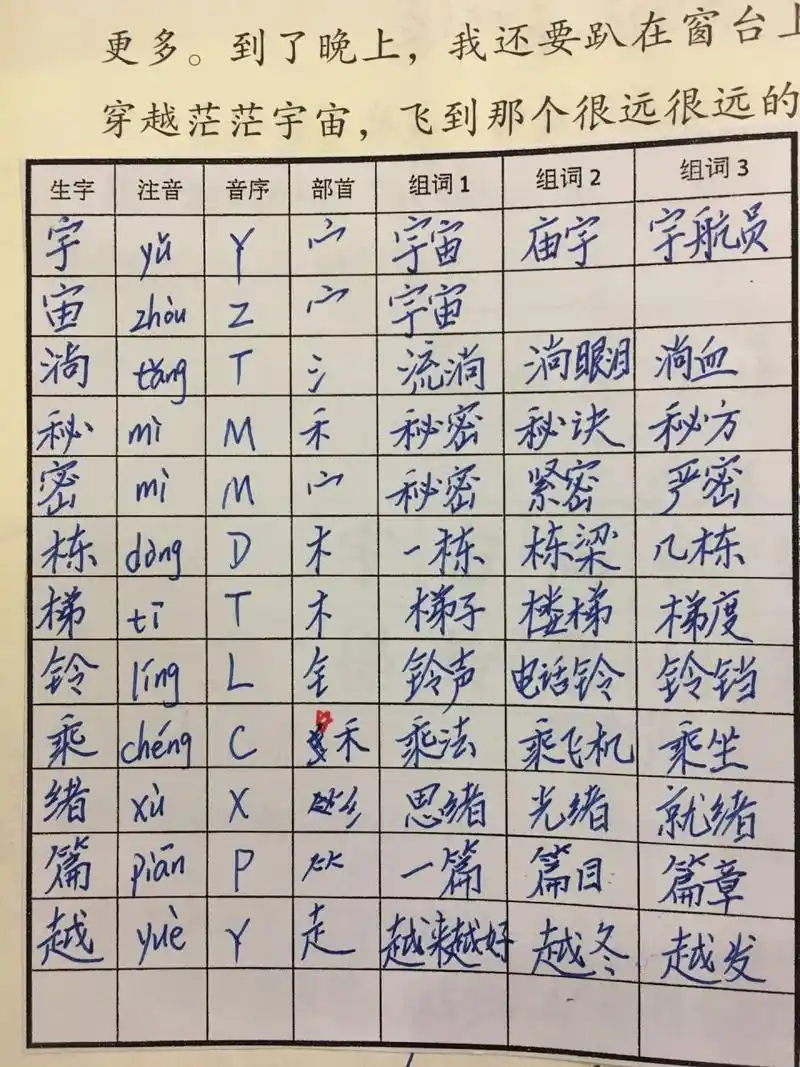 更多。到了晚上，我还要趴在窗台上
穿越茫茫宇宙，飞到那个很远很远的
生字 注音 音序 部首 组词1 组词2 组词3
宇 yǔ Y 宀 宇宙 庙宇 宇航员
宙 zhòu Z 宀 宇宙
淌 tǎng T 氵 流淌 淌眼泪 淌血
秘 mì M 禾 秘密 秘诀 秘方
密 mì M 宀 秘密 紧密 严密
栋 dòng D 木 一栋 栋梁 几栋
梯 tī T 木 梯子 楼梯 梯度
铃 líng L 钅 铃声 电话铃 铃铛
乘 chéng C 禾 乘法 乘飞机 乘坐
绪 xù X 纟 思绪 光绪 就绪
篇 piān P ⺮ 一篇 篇目 篇章
越 yuè Y 走 越来越好 越冬 越发